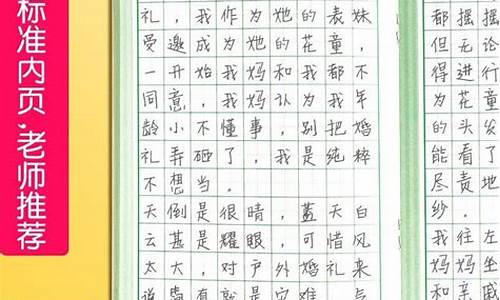 标准内页.老师推荐
礼，我作为她的表妹
受邀成为她的花童，
一开始我妈和我都不
同意，我妈认为我年
龄小不懂事，别把婚
礼弄砸了，我是纯粹
不想当。
天倒是很晴，蓝天白
云甚是耀眼，可惜风
太大，对户外婚礼来
说就是灾难，
都摇摇
但无论
得进行
为花童
的头发
能看了
尽责地
纱。
我往左
妈妈坐
和亲戚